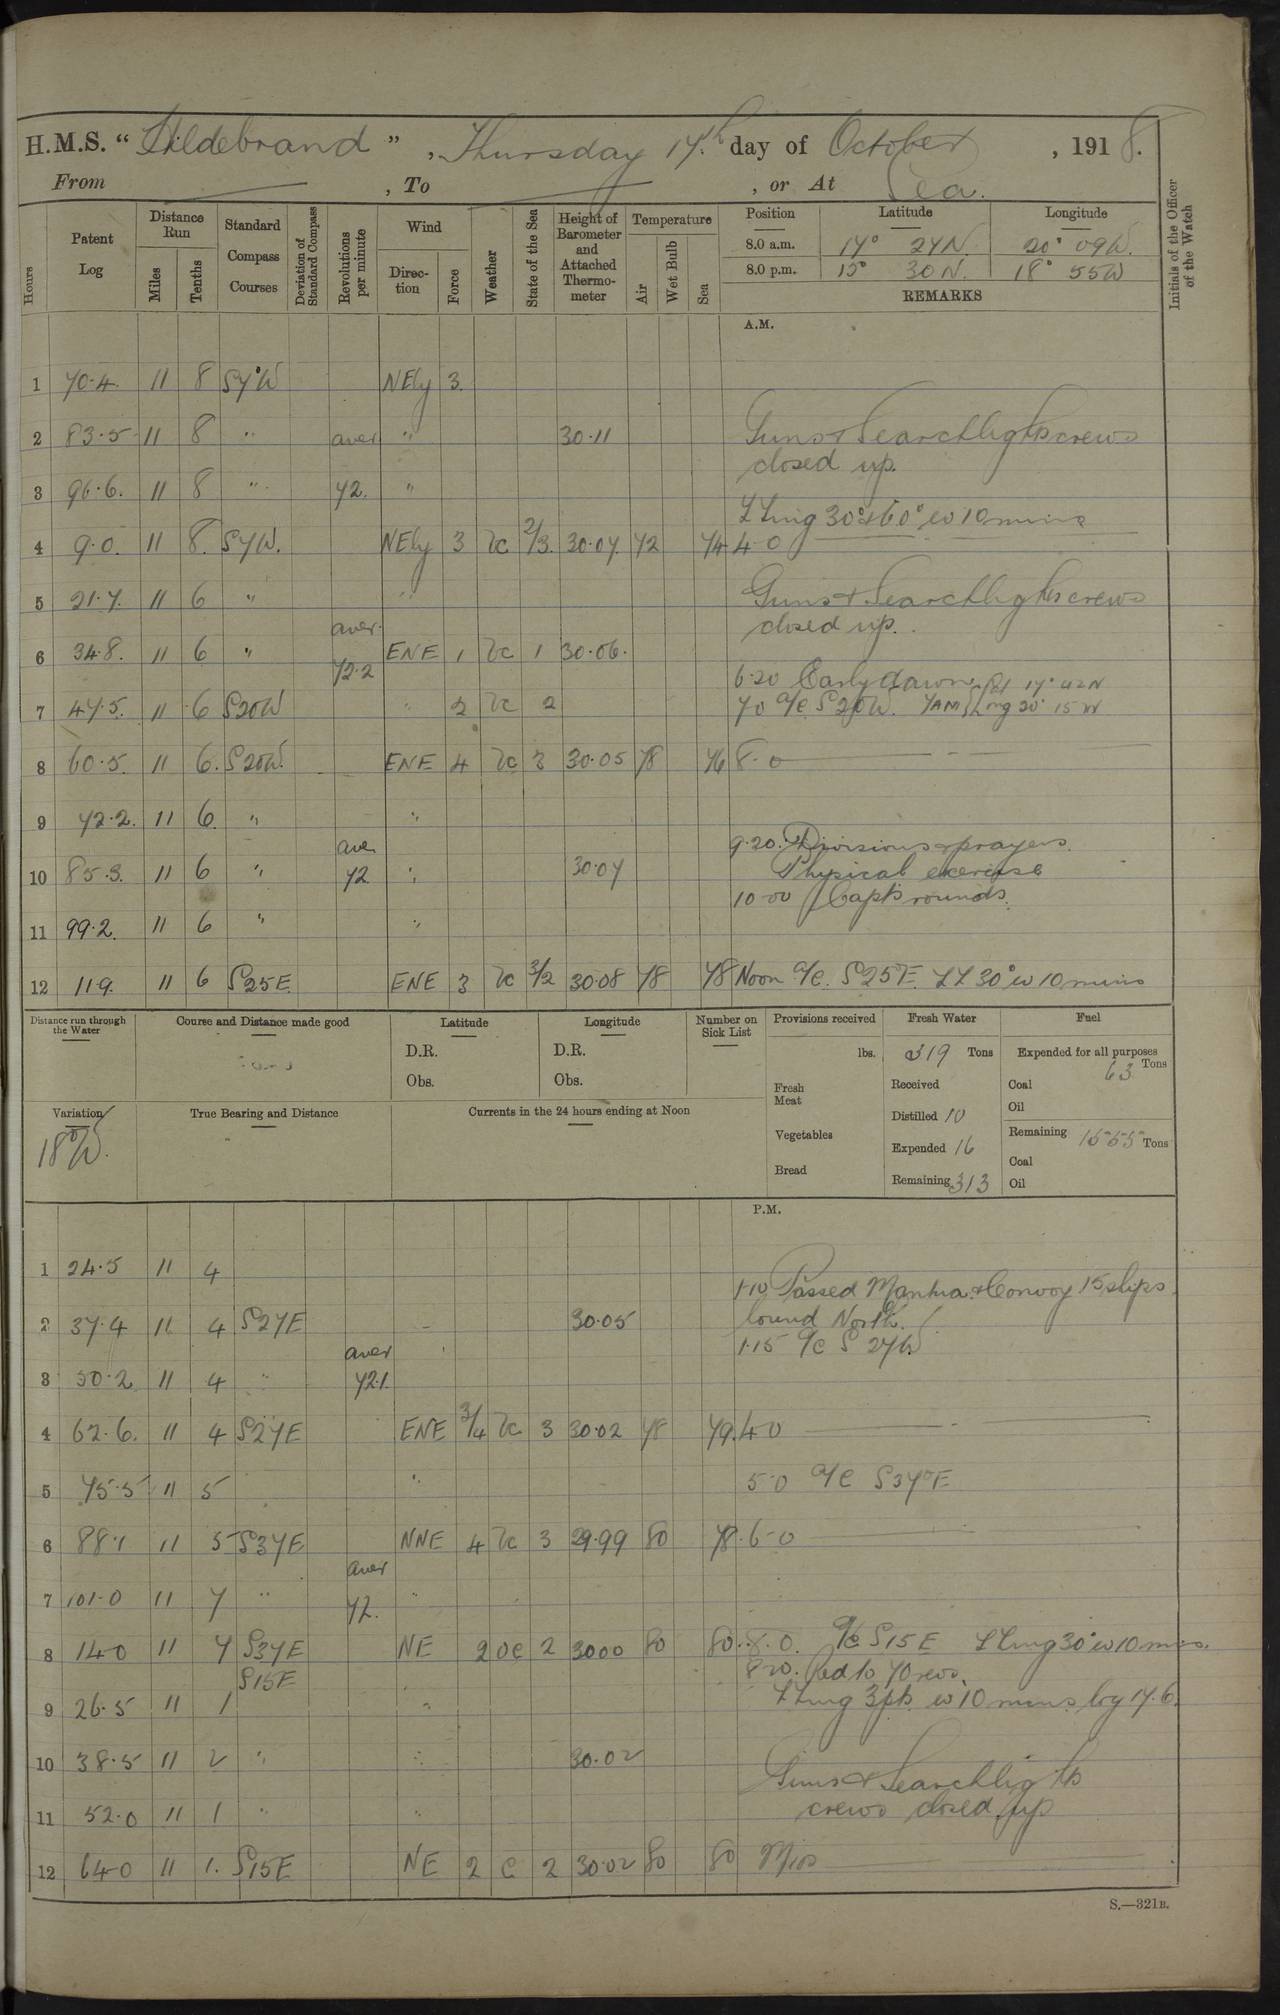 H.M.S. “Hildebrand” , Thursday 17th day of October , 1918.
From , To , or At Sea.
Hours
Patent Log
Distance Run
Miles
Tenths
Standard Compass Courses
Deviation of Standard Compass
Revolutions per minute
Wind
Direction
Force
Weather
State of the Sea
Height of Barometer and Attached Thermometer
Temperature
Air
Wet Bulb
Sea
Position Latitude Longitude
8.0 a.m. 17° 24N 20° 09W.
8.0 p.m. 15° 30N. 18° 55W
REMARKS
Initials of the Officer of the Watch
A.M.
1 70.4. 11 8 S7°W NEly 3.
2 83.5 11 8 " aver " 30.11 Guns & Searchlights crews
closed up.
3 96.6. 11 8 " 72. "
30° & 60° 10 mins
4 9.0. 11 8. S7W. NEly 3 bc 2/3. 30.07. 72 74 4.0
5 21.7. 11 6 " " Guns & Searchlights crews
closed up.
aver.
6 34.8. 11 6 " 72.2 ENE 1 bc 1 30.06.
6.20 Early dawn. Lat 17° 42N
7 47.5. 11 6 S20W " 2 bc 2 7.0 a/c S20W. 7AM Lng 20° 15W
8 60.5. 11 6. S20W. ENE 4 bc 3 30.05 78 76 8.0
9 72.2. 11 6. " "
aver 9.20. Divisions & prayers.
10 85.3. 11 6 " 72 " 30.07 Physical exercise
10.00 Capt's rounds.
11 99.2. 11 6 " "
12 11.9. 11 6 S25E. ENE 3 bc 3/2 30.08 78 78 Noon a/c. S25E. 30° 10 mins
Distance run through the Water
Course and Distance made good
Latitude
D.R.
Obs.
Longitude
D.R.
Obs.
Number on Sick List
Provisions received
lbs.
Fresh Meat
Vegetables
Bread
Fresh Water
319 Tons
Received
Distilled 10
Expended 16
Remaining 313
Fuel
Expended for all purposes
63 Tons
Coal
Oil
Remaining 1555 Tons
Coal
Oil
Variation
18°W.
True Bearing and Distance
Currents in the 24 hours ending at Noon
P.M.
1 24.5 11 4
1.10 Passed Mantua & Convoy 15 ships
2 37.4 11 4 S27E 30.05 bound North.
aver 1.15 a/c S 27W.
3 50.2 11 4 " 72.1
4 62.6. 11 4 S27E ENE 3/4 bc 3 30.02 78 79. 4.0
5 75.5 11 5 " 5.0 a/c S37°E
6 88.1 11 5 S37E NNE 4 bc 3 29.99 80 78. 6.0
aver
7 101.0 11 7 " 72. "
8 14.0 11 7 S37E NE 2 oc 2 30.00 80 80. 8.0. a/c S15E 30° 10 mins.
S15E 8.20. Red to 70 revs.
9 26.5 11 1 " 3 pts 10 mins. log 17.6.
10 38.5 11 2 " " 30.02 Guns & Searchlights
11 52.0 11 1 " " crews closed up
12 64.0 11 1. S15E NE 2 c 2 30.02 80 80 Mids
S.—321B.